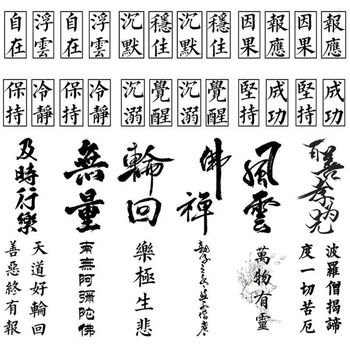 自在
浮雲
自在
浮雲
沉默
穩佳
沉默
穩佳
因果
報應
因果
報應
保持
冷靜
保持
冷靜
沉溺
覺醒
沉溺
覺醒
堅持
成功
堅持
成功
及時行樂
無量
輪回
佛禪
風雲
百善孝
天道好輪回
善惡終有報
南無阿彌陀佛
樂極生悲
萬物有靈
波羅僧揭諦
度一切苦厄